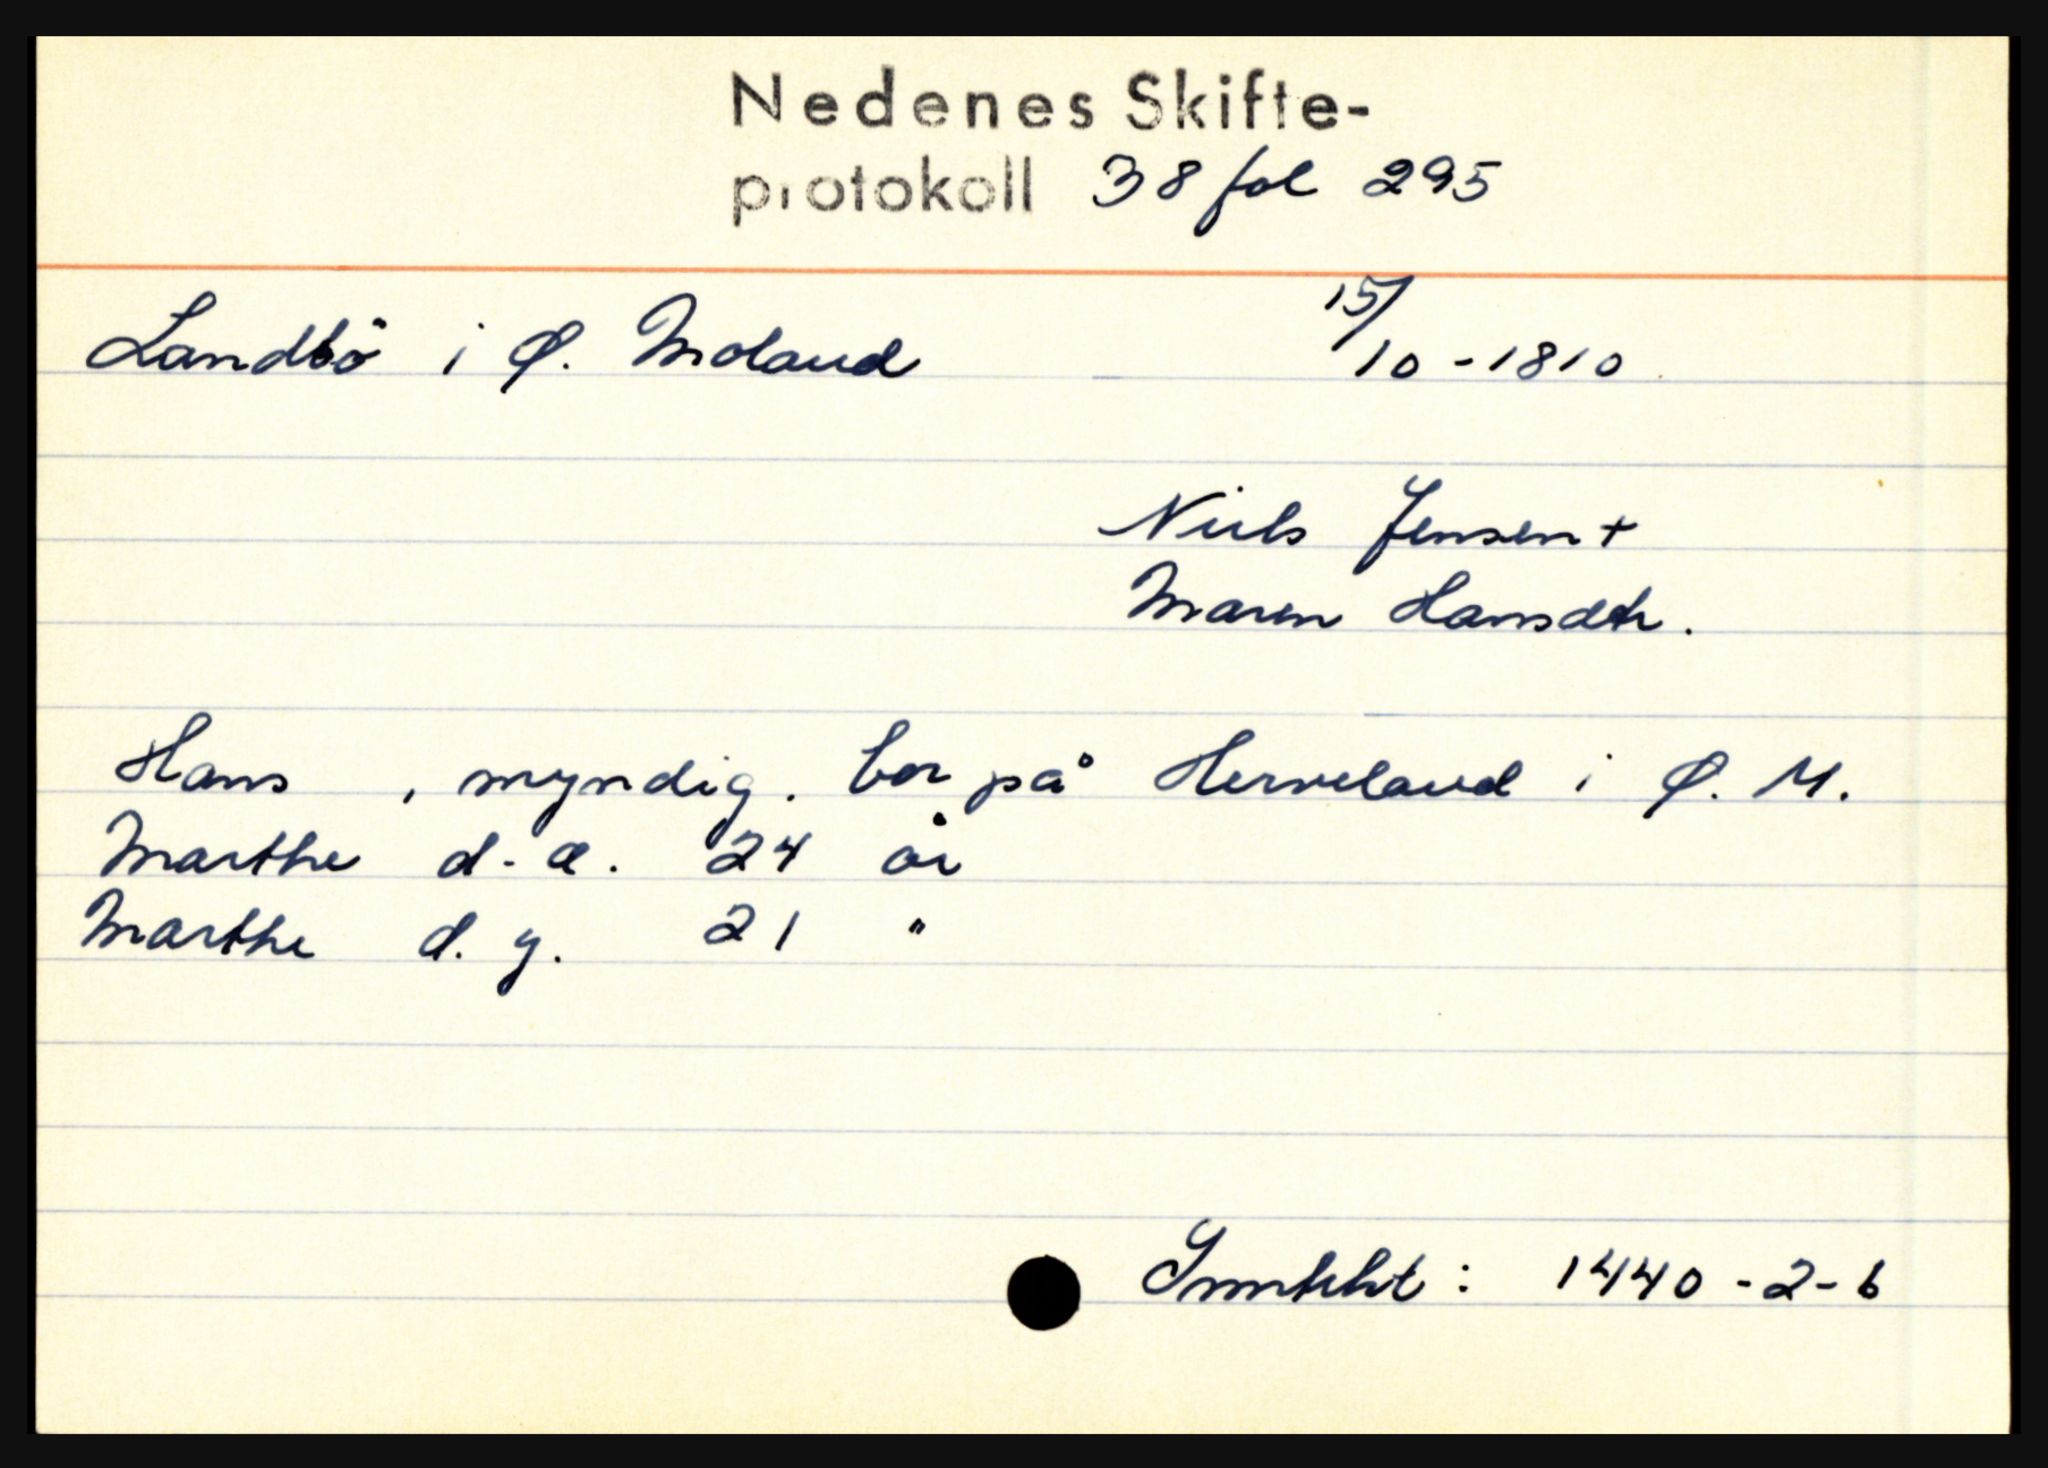 Nedenes Skifte-
protokoll 38 fol 295
Landbö i Ø. Moland 15/10-1810
Niels Jensen +
Maren Hansdtr.
Hans , myndig. bor på Herveland i Ø. M.
Marthe d. æ. 24 år
Marthe d. y. 21 "
Inntekt : 1440-2-6